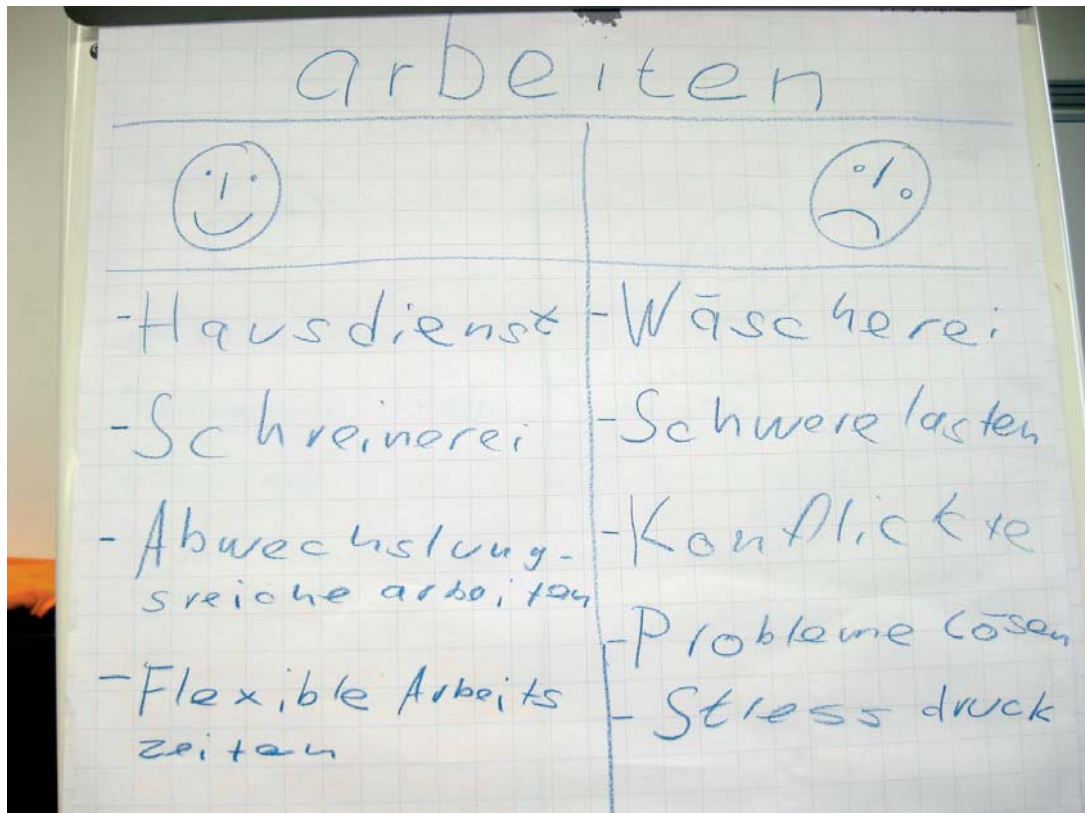 arbeiten
- Hausdienst
- Schreinerei
- Abwechslung-
sreiche arbeiten
- Flexible Arbeits
zeiten
- Wäscherei
- Schwere lasten
- Konflickte
- Probleme lösen
- Stress druck